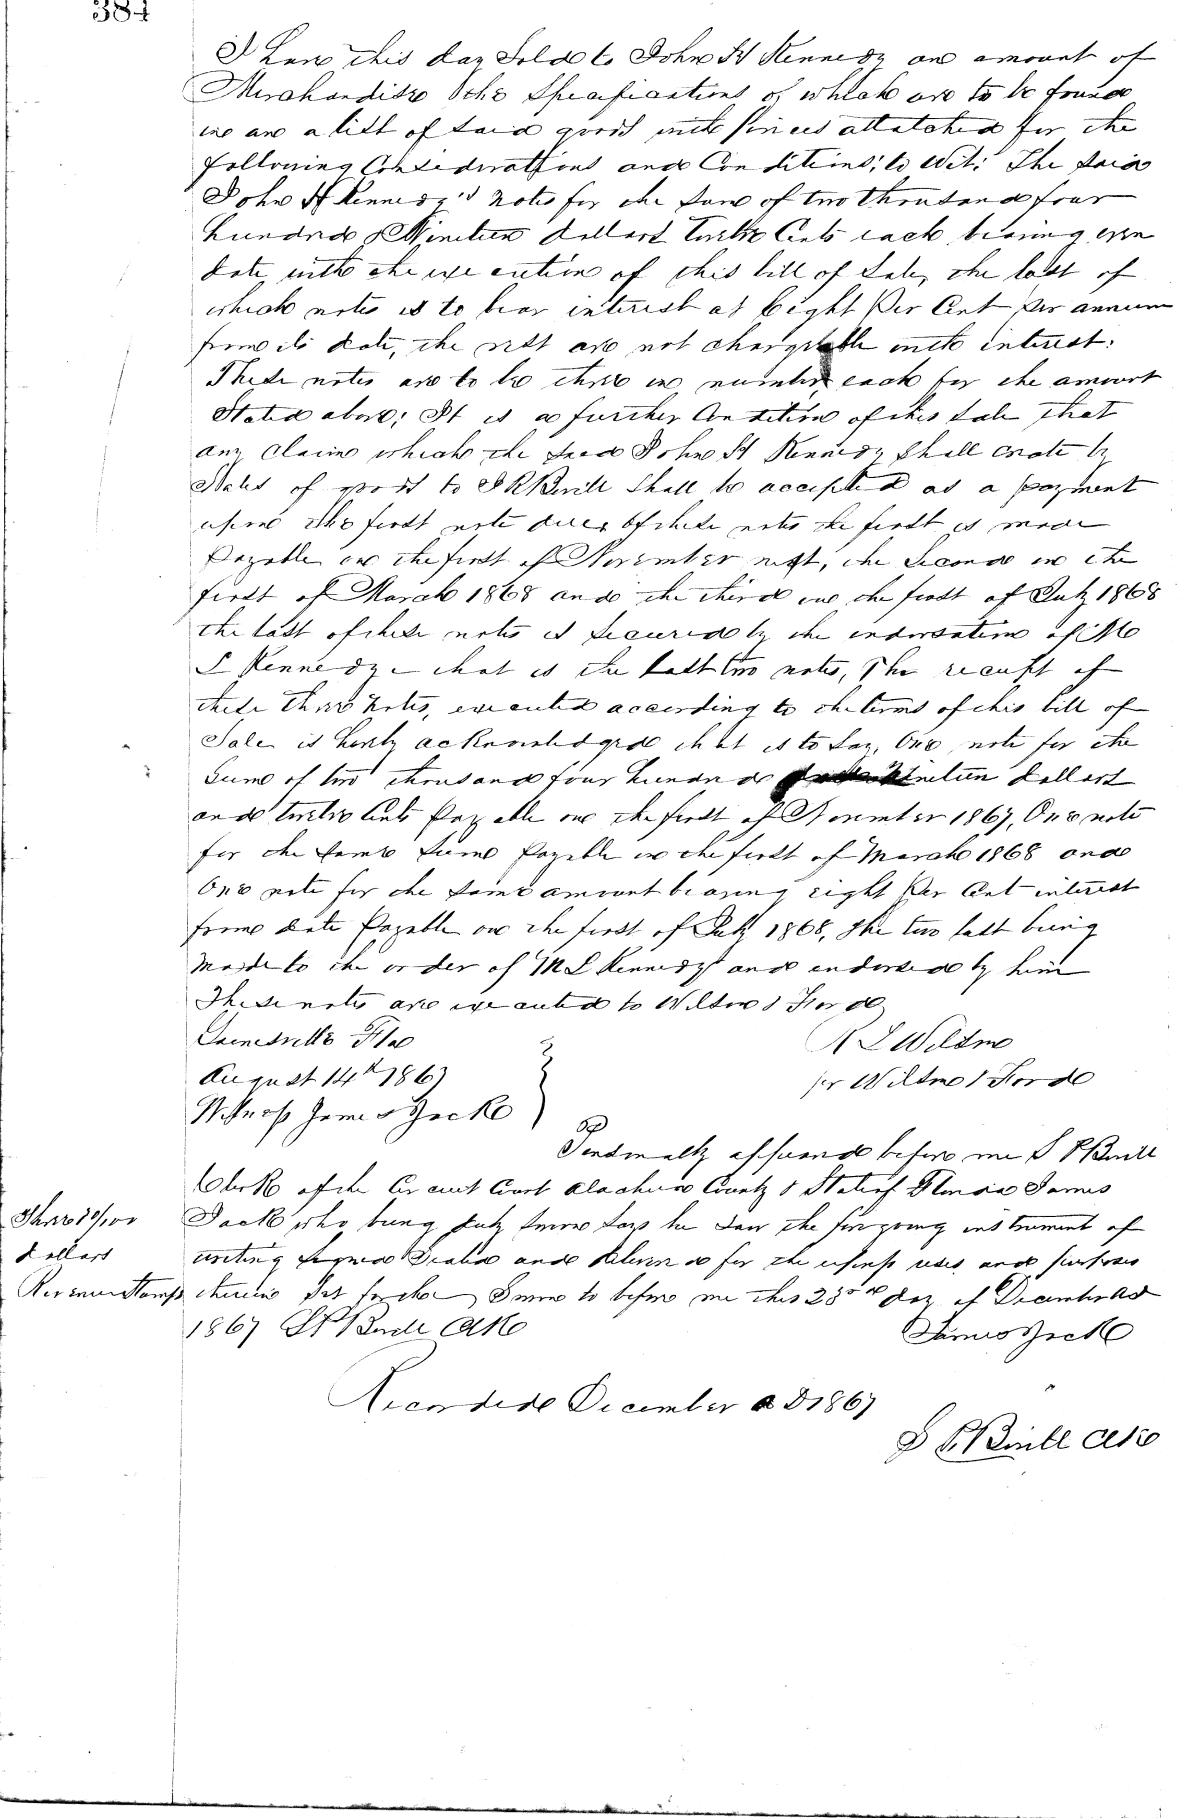 384
I have this day Sold to John H Kennedy an amount of
Merchandise the Specifications of which are to be found
in an a list of said goods with prices attatched for the
following Considerations and Conditions; to wit: The said
John H Kennedy's notes for the sum of two thousand four
hundred & Nineteen dollars Twelve Cents each bearing even
date with the execution of this bill of Sale, the last of
which notes is to bear interest at Eight Per Cent Per annum
from its date, the rest are not chargeable with interest.
These notes are to be three in number each for the amount
Stated above; It is a further Condition of this Sale that
any claim which the said John H Kennedy shall create by
Sales of goods to Bevill Shall be accepted as a payment
upon the first note due, of these notes the first is made
Payable on the first of November next, the Second on the
first of March 1868 and the third on the first of July 1868
the last of these notes is secured by the indorsation of M
L Kennedy that is the last two notes, The receipt of
these three notes, executed according to the terms of this bill of
Sale is hereby acknowledged that is to Say, One note for the
Sum of two thousand four hundred Nineteen dollars
and twelve Cents Payable on the first of November 1867, One note
for the same sum Payable on the first of March 1868 and
One note for the same amount bearing eight Per Cent interest
from date Payable on the first of July 1868, the two last being
made to the order of M L Kennedy and endorsed by him
These notes are executed to Wilson & Forde
Gainesville Fla
L Wilson
August 14th 1867
per Wilson & Forde
Witness James Zacke
Personally appeared before me Bevill
Clerk of the Circuit Court Alachua County & State of Florida James
Zack who being duly sworn says he saw the foregoing instrument of
Three 50/100
writing signed Sealed and delivered for the uses and purposes
dollars
Revenue Stamps
therein Set forth Sworn to before me this 23rd day of December AD
1867 Bevill Clk
James Zack
Recorded December AD 1867
Bevill Clk